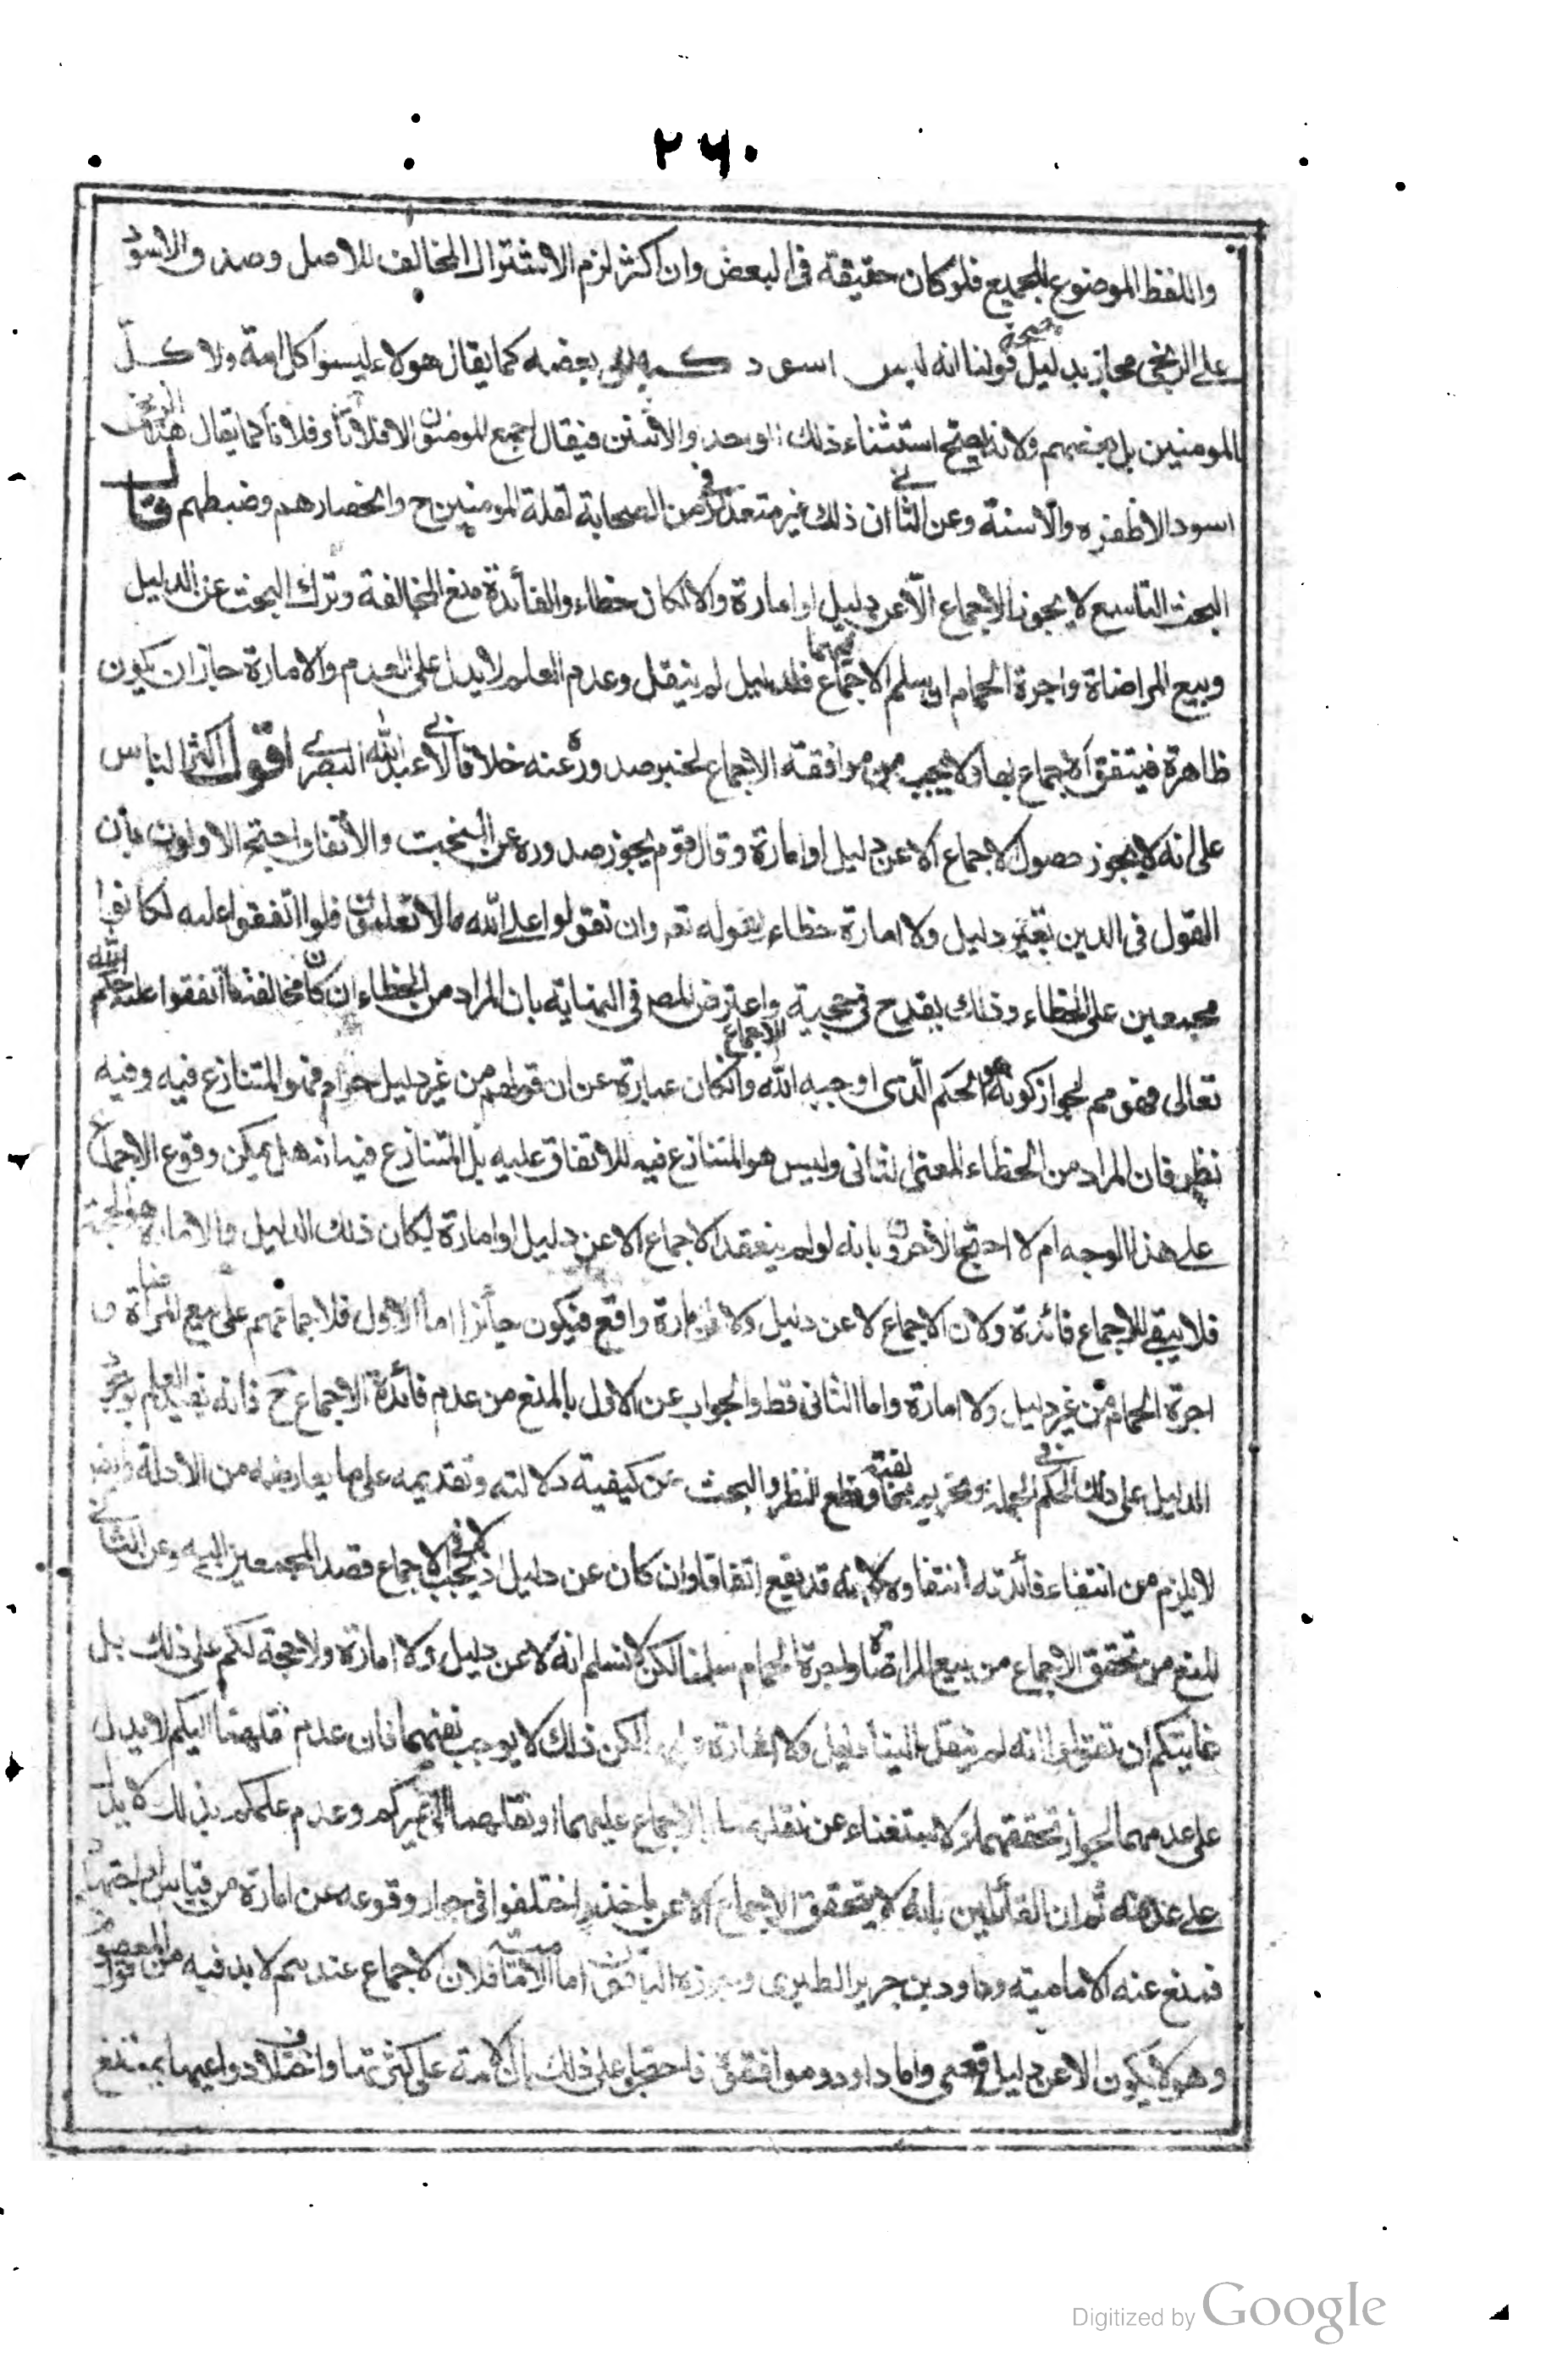 ۲۶۰
واللفظ الموضوع للجميع فلو كان حقيقة فى البعض وان اكثر لزم الاشتراك المخالف للاصل وصدق الاسود
على الزنجى مجاز بدليل صحة قولنا انه ليس اسود كله بل بعضه كما يقال هولاء ليسوا كل الامة ولا كلّ
المومنين بل بعضهم ولانه يصح استثناء ذلك الوحد والاثنين فيقال اجمع المومنون الا فلانا وفلانا كما يقال هذا الزنجى
اسود الا ظفره والا سنه وعن الثانى ان ذلك غير متعذر فى زمن الصحابة لقلة المومنين ح وانحصارهم وضبطهم قال
البحث التاسع لا يجوز الاجماع الّا عن دليل او امارة والا لكان خطاء والفائدة منع المخالفة وترك البحث عن الدليل
وبيع المراضاة واجرة الحمام ان سلم الاجماع فيهما فلدليل لم ينقل وعدم العلم لا يدل على العدم والامارة جاز ان يكون
ظاهرة فيتفق الاجماع بها ولا يجب من موافقة الاجماع لخبر صدوره عنه خلافا لابى عبد الله البصرى اقول اكثر الناس
على انه لا يجوز حصول الاجماع الا عن دليل او امارة وقال قوم يجوز صدوره عن البخت والاتفاق واحتج الاولون بان
القول فى الدين بغير دليل ولا امارة خطاء لقوله تعه وان تقولوا على الله ما لا تعلمون فلو اتفقوا عليه لكانوا
مجمعين على الخطاء وذلك يقدح فى حجية الاجماع واعترض المصه فى النهاية بان المراد من الخطاء ان كان مخالفة ما اتفقوا عليه حكم الله
تعالى فهو مم لجواز كونه هو الحكم الّذى اوجبه الله وان كان عبارة عن ان قولهم من غير دليل حرام فهو المتنازع فيه وفيه
نظر فان المراد من الخطاء المعنى الثانى وليس هو المتنازع فيه للاتفاق عليه بل المتنازع فيه انه هل يمكن وقوع الاجماع
على هذا الوجه ام لا احتج الآخرون بانه لو لم ينعقد الاجماع الا عن دليل او امارة لكان ذلك الدليل والامارة هو الحجة
فلا يبقى للاجماع فائدة ولان الاجماع لا عن دليل ولا امارة واقع فيكون جائزا اما الاول فلاجماعهم على بيع المراضاة و
اجرة الحمام من غير دليل ولا امارة واما الثانى فظ والجواب عن الاول بالمنع من عدم فائدة الاجماع ح فانه يفيد العلم بوجود
الدليل على ذلك الحكم فى الجملة وتحريم مخالفته وقطع النظر والبحث عن كيفية دلالته وتقديمه على ما يعارضه من الادلة وايضا
لا يلزم من انتفاء فائدته انتفاوه لانه قد يقع اتفاقا وان كان عن دليل اذ لا يجب فى الاجماع قصد المجمعين اليه وعن الثانى
المنع من تحقق الاجماع من بيع المراضاة واجرة الحمام سلمنا لكن لا نسلم انه لا عن دليل ولا امارة ولا حجة لكم على ذلك بل
غايتكم ان تقولوا انه لم ينقل الينا دليل ولا امارة لكن ذلك لا يوجب نفيهما فان عدم نقلهما اليكم لا يدل
على عدمهما لجواز تحققهما والاستغناء عن نقلهما بالاجماع عليهما او نقلهما الى غيركم وعدم علمكم بذلك لا يدل
على عدمه ثم ان القائلين بانه لا يتحقق الاجماع الا عن ماخذ اختلفوا فى جواز وقوعه عن امارة من قياس او اجتهاد
فمنع عنه الامامية وداود بن جرير الطبرى وجوزه الباقون اما الامامية فلان الاجماع عندهم لا بد فيه من قول المعصوم
وهو لا يكون الا عن دليل قطعى واما داود وموافقوه فاحتجوا على ذلك بان الامة على كثرتها واختلاف دواعيها يمتنع